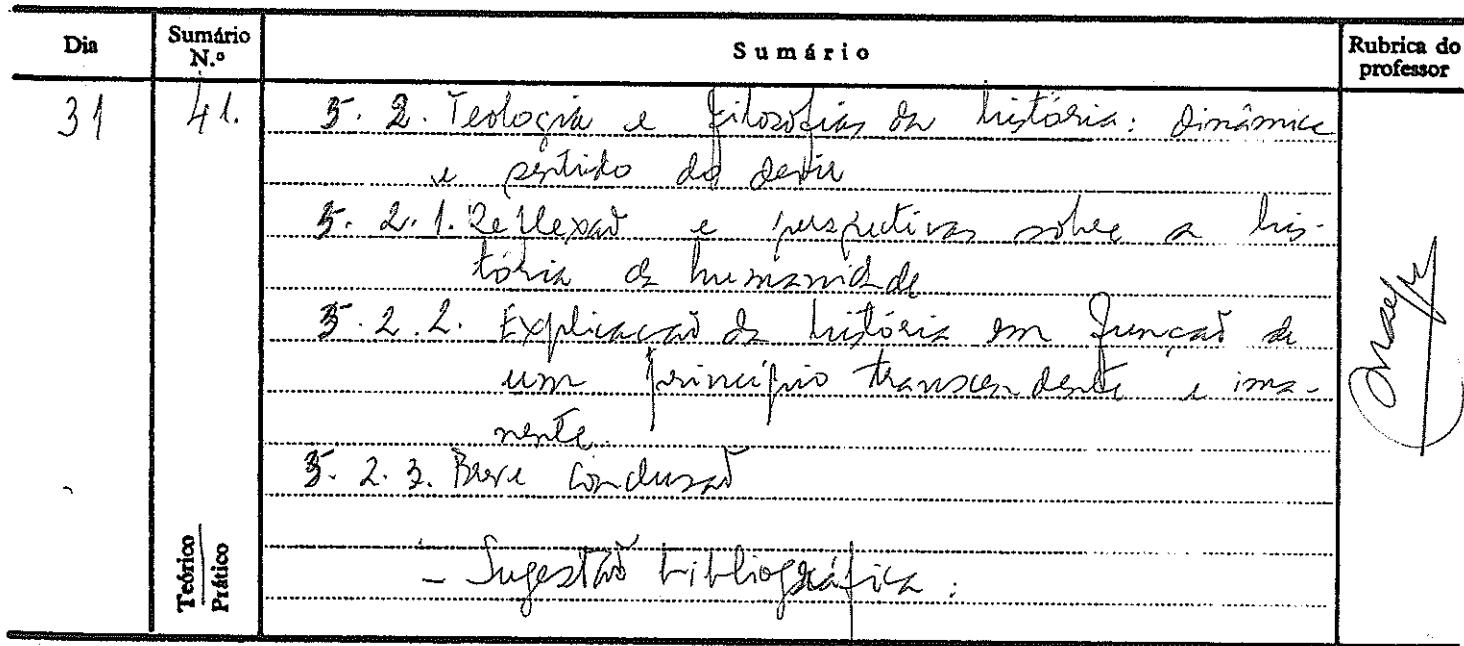 Dia Sumário N.º Sumário Rubrica do professor
31 41. 5. 2. Teologia e filosofias da história: dinâmica
e sentido do devir
5. 2. 1. Reflexão e perspectivas sobre a his-
tória da humanidade
5. 2. 2. Explicação da história em função de
um princípio transcendente e ima-
nente.
5. 2. 3. Breve conclusão
Teórico
Prático
- Sugestão bibliográfica: